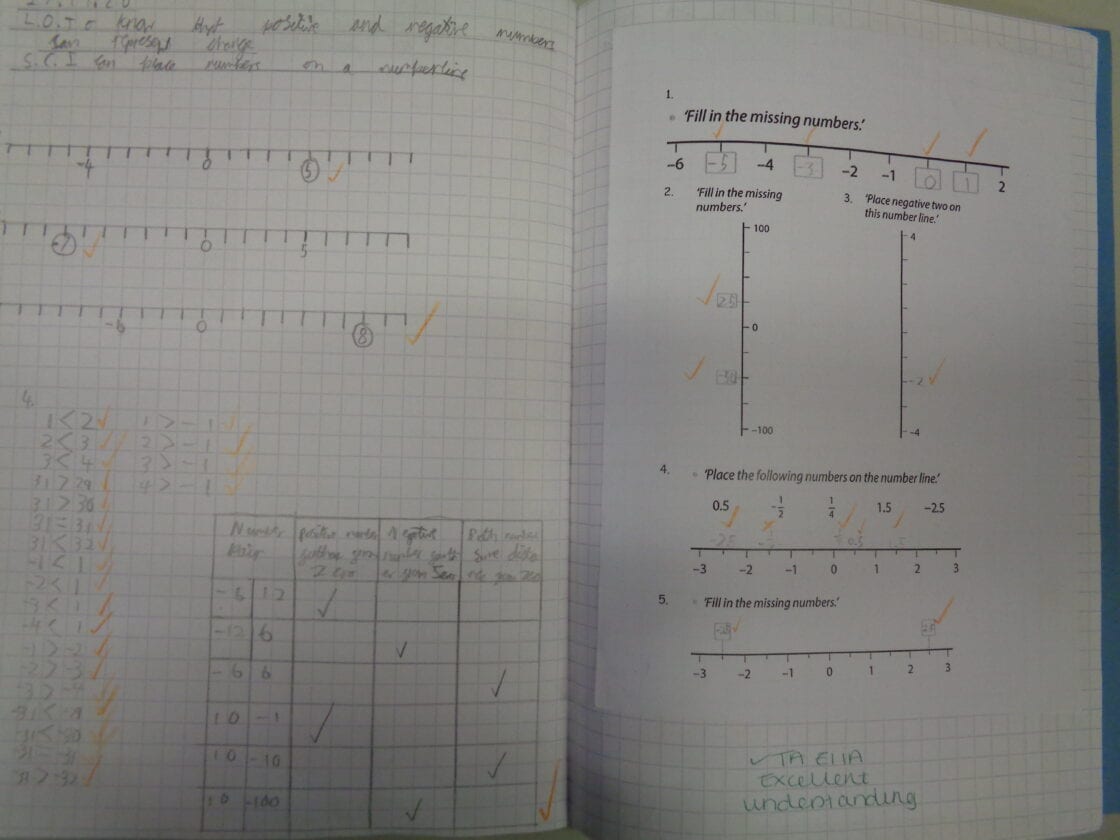 L.O. To know that positive and negative numbers
can represent change
S.C. I can place numbers on a numberline
-4 0 5
-7 0 5
-6 0 8
4.
1 < 2 1 > -1
2 < 3 2 > -1
3 < 4 3 > -1
31 > 29 4 > -1
31 > 30
31 = 31
31 < 32
-1 < 1
-2 < 1
-3 < 1
-4 < 1
-1 > -2
-2 > -3
-3 > -4
-31 < -30
-31 = -31
-31 > -32
Number positive number Negative Both number
Pair further from number from
Zero
-6 12
-12 6
-6 6
10 -1
10 -10
10 -100
1.
'Fill in the missing numbers.'
-6 -5 -4 -3 -2 -1 0 1 2
2. 'Fill in the missing
numbers.'
100
25
0
-50
-100
3. 'Place negative two on
this number line.'
4
-2
-4
4. 'Place the following numbers on the number line.'
0.5 -1/2 1/4 1.5 -2.5
-2.5 0.5 1.5
-3 -2 -1 0 1 2 3
5. 'Fill in the missing numbers.'
-2.5 2.5
-3 -2 -1 0 1 2 3
✓ TA
Excellent
understanding